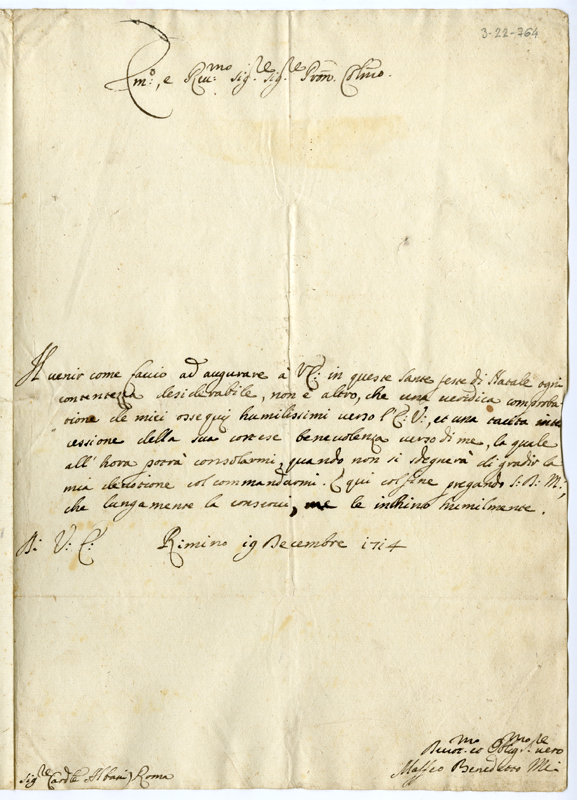 3-22-764
Em.º, e Reu.mo Sig.re Sig.re Pron. Colmo.
Il venir come faccio ad augurare a V.E. in queste Sante feste di Natale ogni
contentezza desiderabile, non è altro, che una veridica comproba
tione de miei ossequij humilissimi verso l'E.V., et una tacita inter
cessione della sua cortese benevolenza verso di me, la quale
all'hora potrà consolarmi, quando non si sdegnerà di gradir la
mia devotione col commandarmi. E qui col fine pregando S.D.M.,
che lungamente la conservi, le inchino humilmente.
D. V. E. Rimino 19 Decembre 1714
Sig.re Card.le Albani) Roma
Deuot.mo et Oblig.mo Se.re vero
Maffeo Benedetto